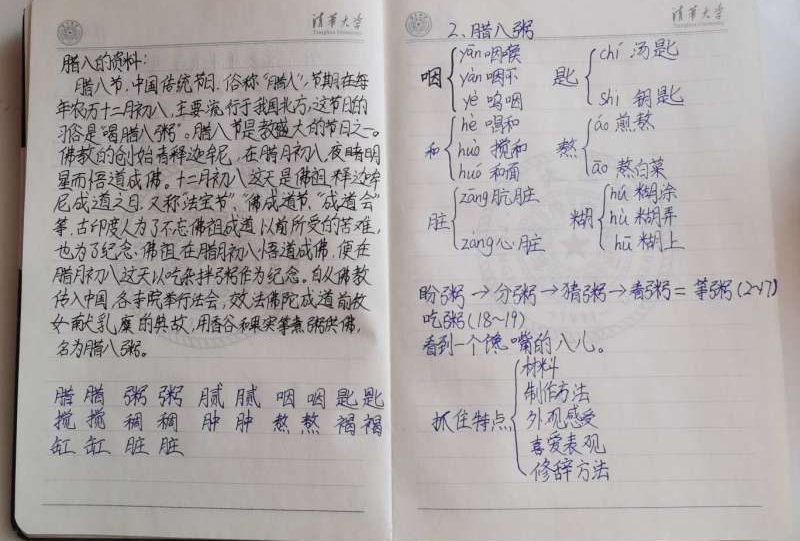 清华大学
Tsinghua University
腊八的资料:
腊八节,中国传统节日,俗称“腊八”,节期在每
年农历十二月初八,主要流行于我国北方,这节日的
习俗是“喝腊八粥”。腊八节是教盛大的节日之一。
佛教的创始者释迦牟尼,在腊月初八,夜睹明
星而悟道成佛。十二月初八这天是佛祖释迦牟
尼成道之日,又称法宝节”“佛成道节”“成道会”
等,古印度人为了不忘佛祖成道以前所受的苦难,
也为了纪念佛祖在腊月初八悟道成佛,便在
腊月初八这天以吃杂拌粥作为纪念。自从佛教
传入中国,各寺院举行法会,效法佛陀成道前牧
女献乳糜的典故,用香谷和果实等煮粥供佛,
名为腊八粥。
腊 腊 粥 粥 腻 腻 咽 咽 匙 匙
搅 搅 稠 稠 肿 肿 熬 熬 褐 褐
缸 缸 脏 脏
清华大学
Tsinghua University
2、腊八粥
咽 yān 咽喉
yàn 咽不
yè 呜咽
匙 chí 汤匙
shi 钥匙
和 hè 唱和
huò 搅和
huó 和面
熬 áo 煎熬
āo 熬白菜
脏 zāng 肮脏
zàng 心脏
糊 hú 糊涂
hù 糊弄
hū 糊上
盼粥→分粥→猜粥→看粥=等粥(2~17)
吃粥(18~19)
看到一个馋嘴的八儿。
抓住特点
材料
制作方法
外观感受
喜爱表观
修辞方法